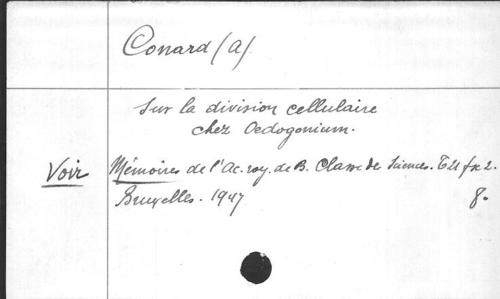 Conard (A)
Sur la division cellulaire
chez Oedogonium.
Voir Mémoires de l'Ac. roy. de B. Classe de Sciences. T 21 fx 2.
Bruxelles. 1947 8°